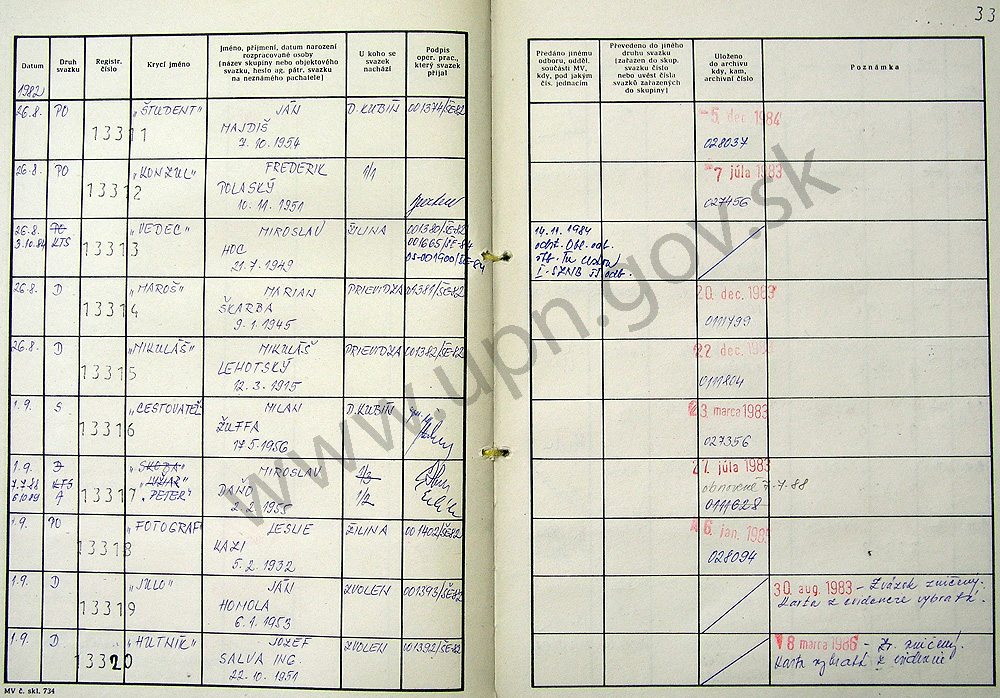 33
Datum
Druh svazku
Registr. číslo
Krycí jméno
Jméno, příjmení, datum narození rozpracované osoby
[název skupiny nebo objektového svazku, heslo ag. pátr. svazku na neznámého pachatele]
U koho se svazek nachází
Podpis oper. prac., který svazek přijal
Předáno jinému odboru, odděl. součásti MV, kdy, pod jakým čís. jednacím
Převedeno do jiného druhu svazku [zařazen do skup. svazku číslo nebo uvést čísla svazků zařazených do skupiny]
Uloženo do archivu kdy, kam, archivní číslo
Poznámka
1982
26.8. PO 13311 „ŠTUDENT" JÁN D. KUBÍN 001374/ŠE-82
MAJDIŠ
7.10.1954
5. dec. 1984
028037
26.8. PO 13312 „KONZUL" FREDERIK 1/1
POLASKÝ
10.11.1951
7 júla 1983
027456
26.8. PO 13313 „VEDEC" MIROSLAV ŽILINA 001380/ŠE-82
3.10.84 KTS HOC 001665/ŠE-84
21.7.1949 OS-001900/ŠE-84
14.11.1984
I. SZNB
26.8. D 13314 „MAROŠ" MARIAN PRIEVIDZA 001381/ŠE-82
ŠKARBA
9.1.1945
20. dec. 1983
0111799
26.8. D 13315 „MIKULÁŠ" MIKULÁŠ PRIEVIDZA 001382/ŠE-82
LEHOTSKÝ
12.3.1915
22 dec. 1983
0111804
1.9. S 13316 „CESTOVATEĽ" MILAN D. KUBÍN
ŽUFFA
17.5.1956
23 marca 1983
027356
1.9. D 13317 „SKODA" MIROSLAV 1/3
7.7.88 KTS DAŇO 1/2
A „PETER" 2.2.1955
27. júla 1983
obnovené 7.7.88
0111628
1.9. PO 13318 „FOTOGRAF" LESLIE ŽILINA 001402/ŠE-82
KAZI
5.2.1932
6. jan. 1985
028094
1.9. D 13319 „JULO" JÁN ZVOLEN 001393/ŠE-82
HOMOLA
6.1.1953
30 aug. 1983 - Zväzok zničený.
Karta z evidencie vybratá.
1.9. D 13320 „HUTNÍK" JOZEF ZVOLEN 001392/ŠE-82
SALVA ING.
22.10.1951
8 marca 1986 - Zv. zničený.
Karta vybratá z evidencie
MV č. skl. 734
www.upn.gov.sk